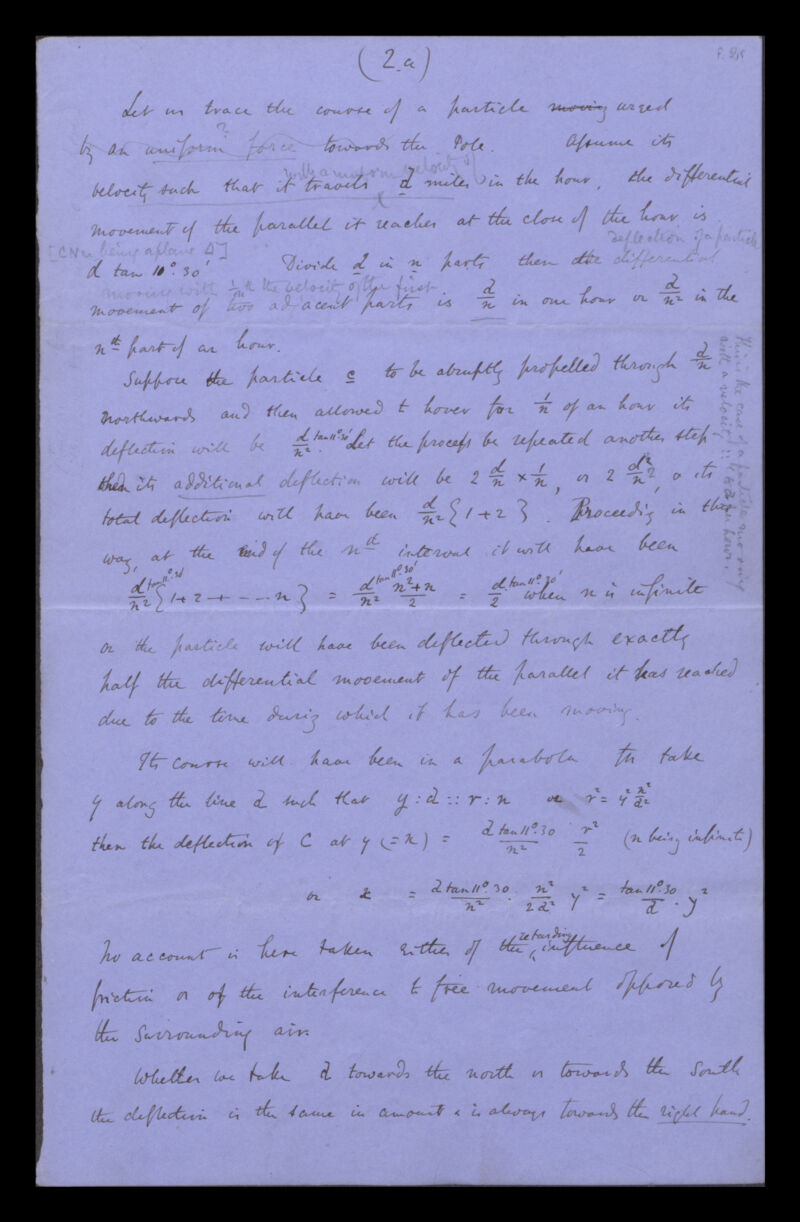 (2.a)
Let us trace the course of a particle moving urged
by an uniform force towards the Pole. Assume its
?
with a uniform velocity of
velocity such that it travels d miles in the hour, the differential
movement of the parallel it reaches at the close of the hour is
[CNn being a plane Δ] deflection of a particle
d tan 10°.30' Divide d in n parts then the differential
moving with 1/n th the velocity of the first
movement of two adjacent parts is d/n in one hour or d/n² in the
nth part of an hour.
Suppose the particle c to be abruptly propelled through d/n
northwards and then allowed to hover for 1/n of an hour its
deflection will be d/n² tan 11°.30'. Let the process be repeated another step
then its additional deflection will be 2 d/n × 1/n, or 2 d/n², & its
total deflection will have been d/n² {1+2}. Proceeding in this
way, at the end of the nth interval it will have been
d tan 11°.30'/n² {1+2+ - - - n} = d tan 11°.30'/n² n²+n/2 = d/2 tan 11°.30' when n is infinite
or the particle will have been deflected through exactly
half the differential movement of the parallel it has reached
due to the time during which it has been moving.
Its course will have been in a parabola for take
y along the line d such that y : d :: r : n or r² = y² n²/d²
then the deflection of C at y (=x) = d tan 11°.30/n² r²/2 (n being infinite)
or x = d tan 11°.30/n² . n²/2d² y² = tan 11°.30/d . y²
No account is here taken either of the retarding influence of
friction or of the interference to free movement opposed by
the surrounding air.
Whether we take d towards the north or towards the South
the deflection is the same in amount & is always towards the right hand.
This is the case of a particle moving
with a velocity